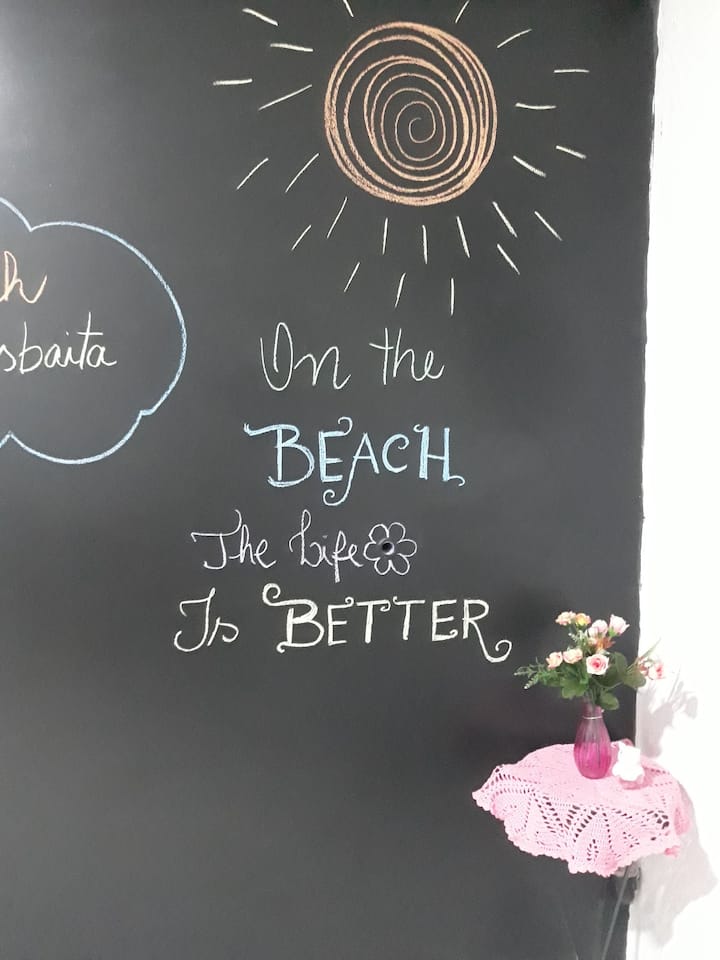 sbaita
On the
BEACH
The Life
Is BETTER